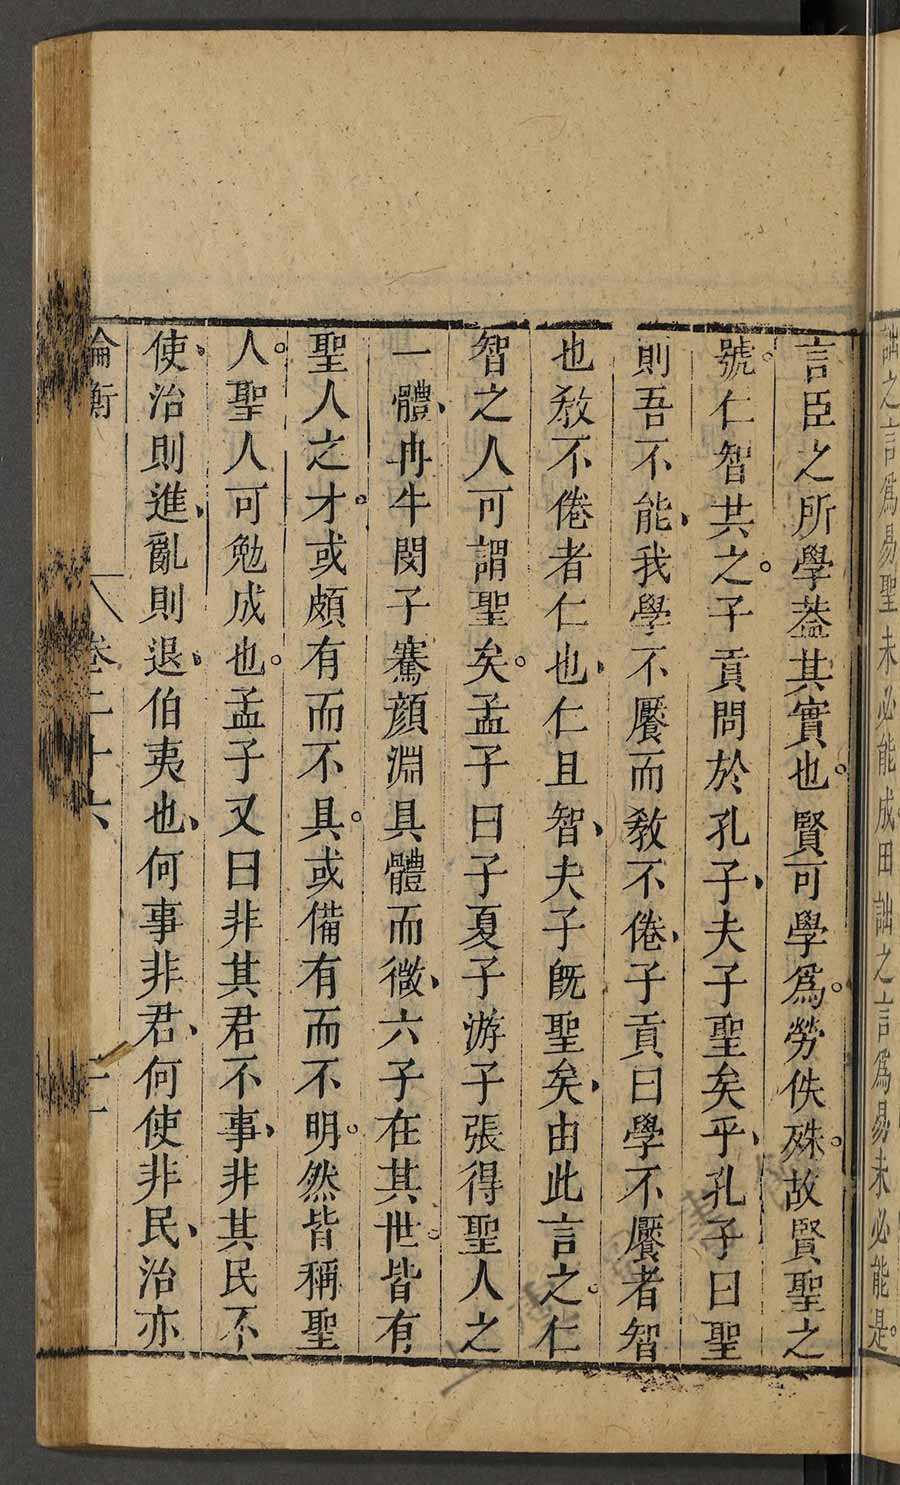 詘之言爲易聖未必能成田詘之言爲易未必能是。
言臣之所學葢其實也。賢可學爲。勞佚殊。故賢聖之
號。仁智共之。子貢問於孔子、夫子聖矣乎、孔子曰聖
則吾不能、我學不饜而敎不倦、子貢曰學不饜者智
也敎不倦者仁也、仁且智、夫子旣聖矣、由此言之。仁
智之人可謂聖矣。孟子曰子夏子游子張得聖人之
一體、冉牛閔子騫顔淵具體而微、六子在其世。皆有
聖人之才。或頗有而不具。或備有而不明。然皆稱聖
人。聖人可勉成也。孟子又曰非其君不事、非其民不
使。治則進、亂則退、伯夷也、何事非君、何使非民、治亦
論衡 卷二十六